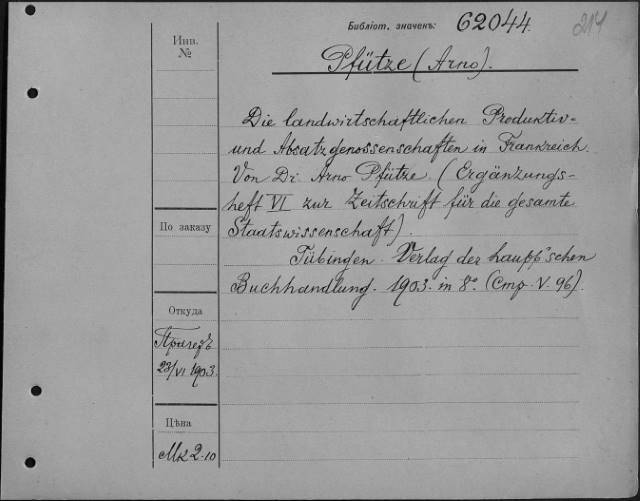 Библіот. значекъ: 62044. 214
Инв.
№
Pfütze (Arno).
Die landwirtschaftlichen Produktiv-
und Absatzgenossenschaften in Frankreich.
Von Dr. Arno Pfütze. (Ergänzungs-
heft VI zur Zeitschrift für die gesamte
Staatswissenschaft).
Tübingen. Verlag der Laupp'schen
Buchhandlung. 1903. in 8º. (Стр. V. 96).
По заказу
Откуда
23/VI 1903.
Цѣна
Mk 2.10